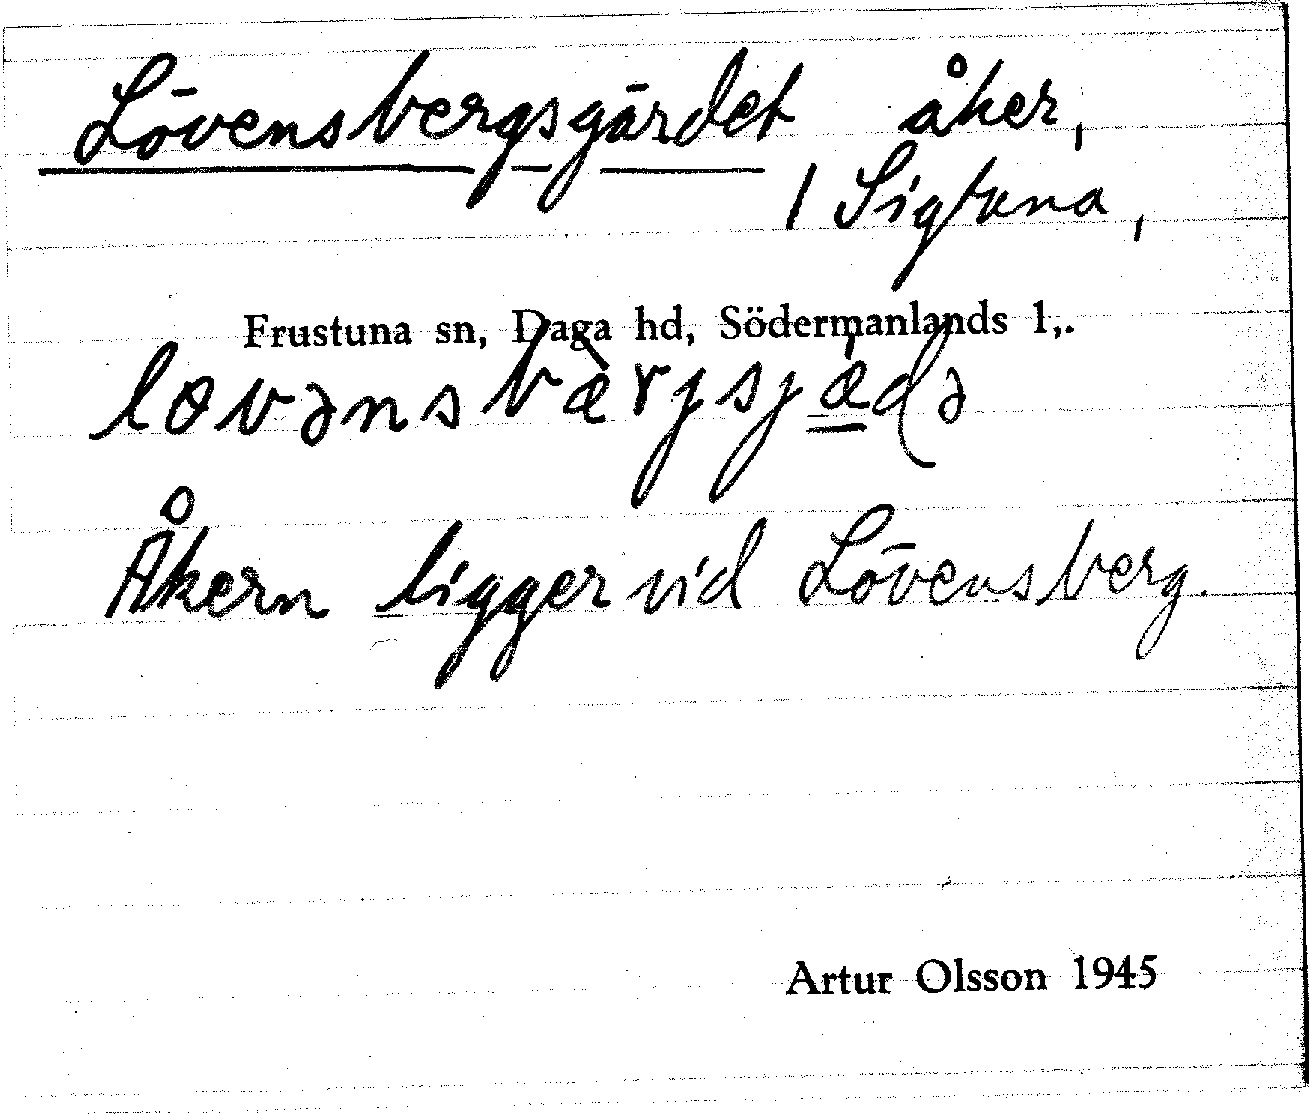 Lövensbergsgärdet åker,
/ Sigtuna,
Frustuna sn, Daga hd, Södermanlands l,.
Åkern ligger vid Lövensberg.
Artur Olsson 1945